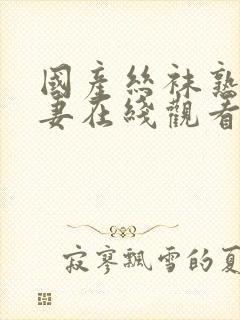 國產絲袜熟
妻在綫觀看
寂寥飄雪的夏